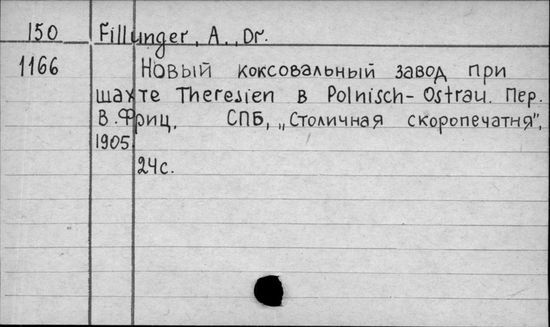 150 Fillunger, A., Dr.
1166 Новый коксовальный завод при
шахте Theresien в Polnisch-Ostrau. Пер.
В. Фриц. СПБ, „Столичная скоропечатня",
1905
24с.